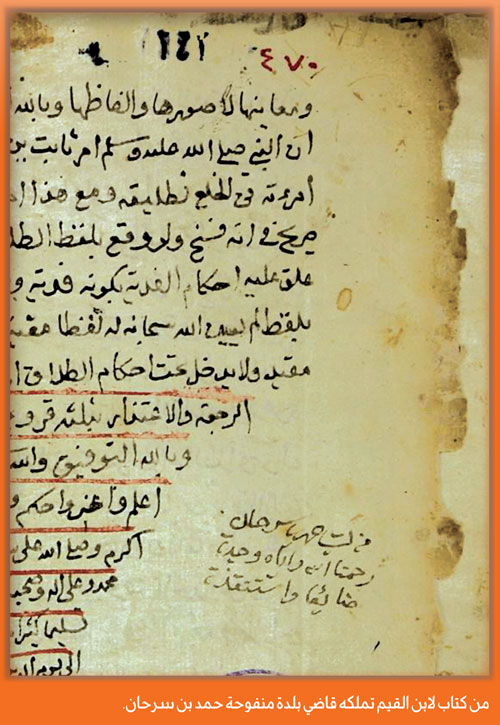 ٤٧٠
ومعانيها لا صورها والفاظها وبالله
ان النبي صلى الله عليه وسلم امر ثابت بن
امرءته في الخلع تطليقه ومع هذا
صريح في انه فسخ ولو وقع بلفظ الطل
علق عليه احكام الفدية بكونه فدية و
بلفظ لم يعين الله سبحانه له لفظا معي
ولا يدخل تحت احكام الطلاق ا
الرجعة والاعتداد بثلثة قروء
وبالله التوفيق والله
اعلم واعز واحكم و
اكرم وصلى الله على
محمد وعلى اله وصحبه
تسليما كثيرا
الى يوم الد
من كتب حمد بن سرحان
رحمنا الله واياه وجدته
ضائعا واستنقذته
من كتاب لابن القيم تملكه قاضي بلدة منفوحة حمد بن سرحان.